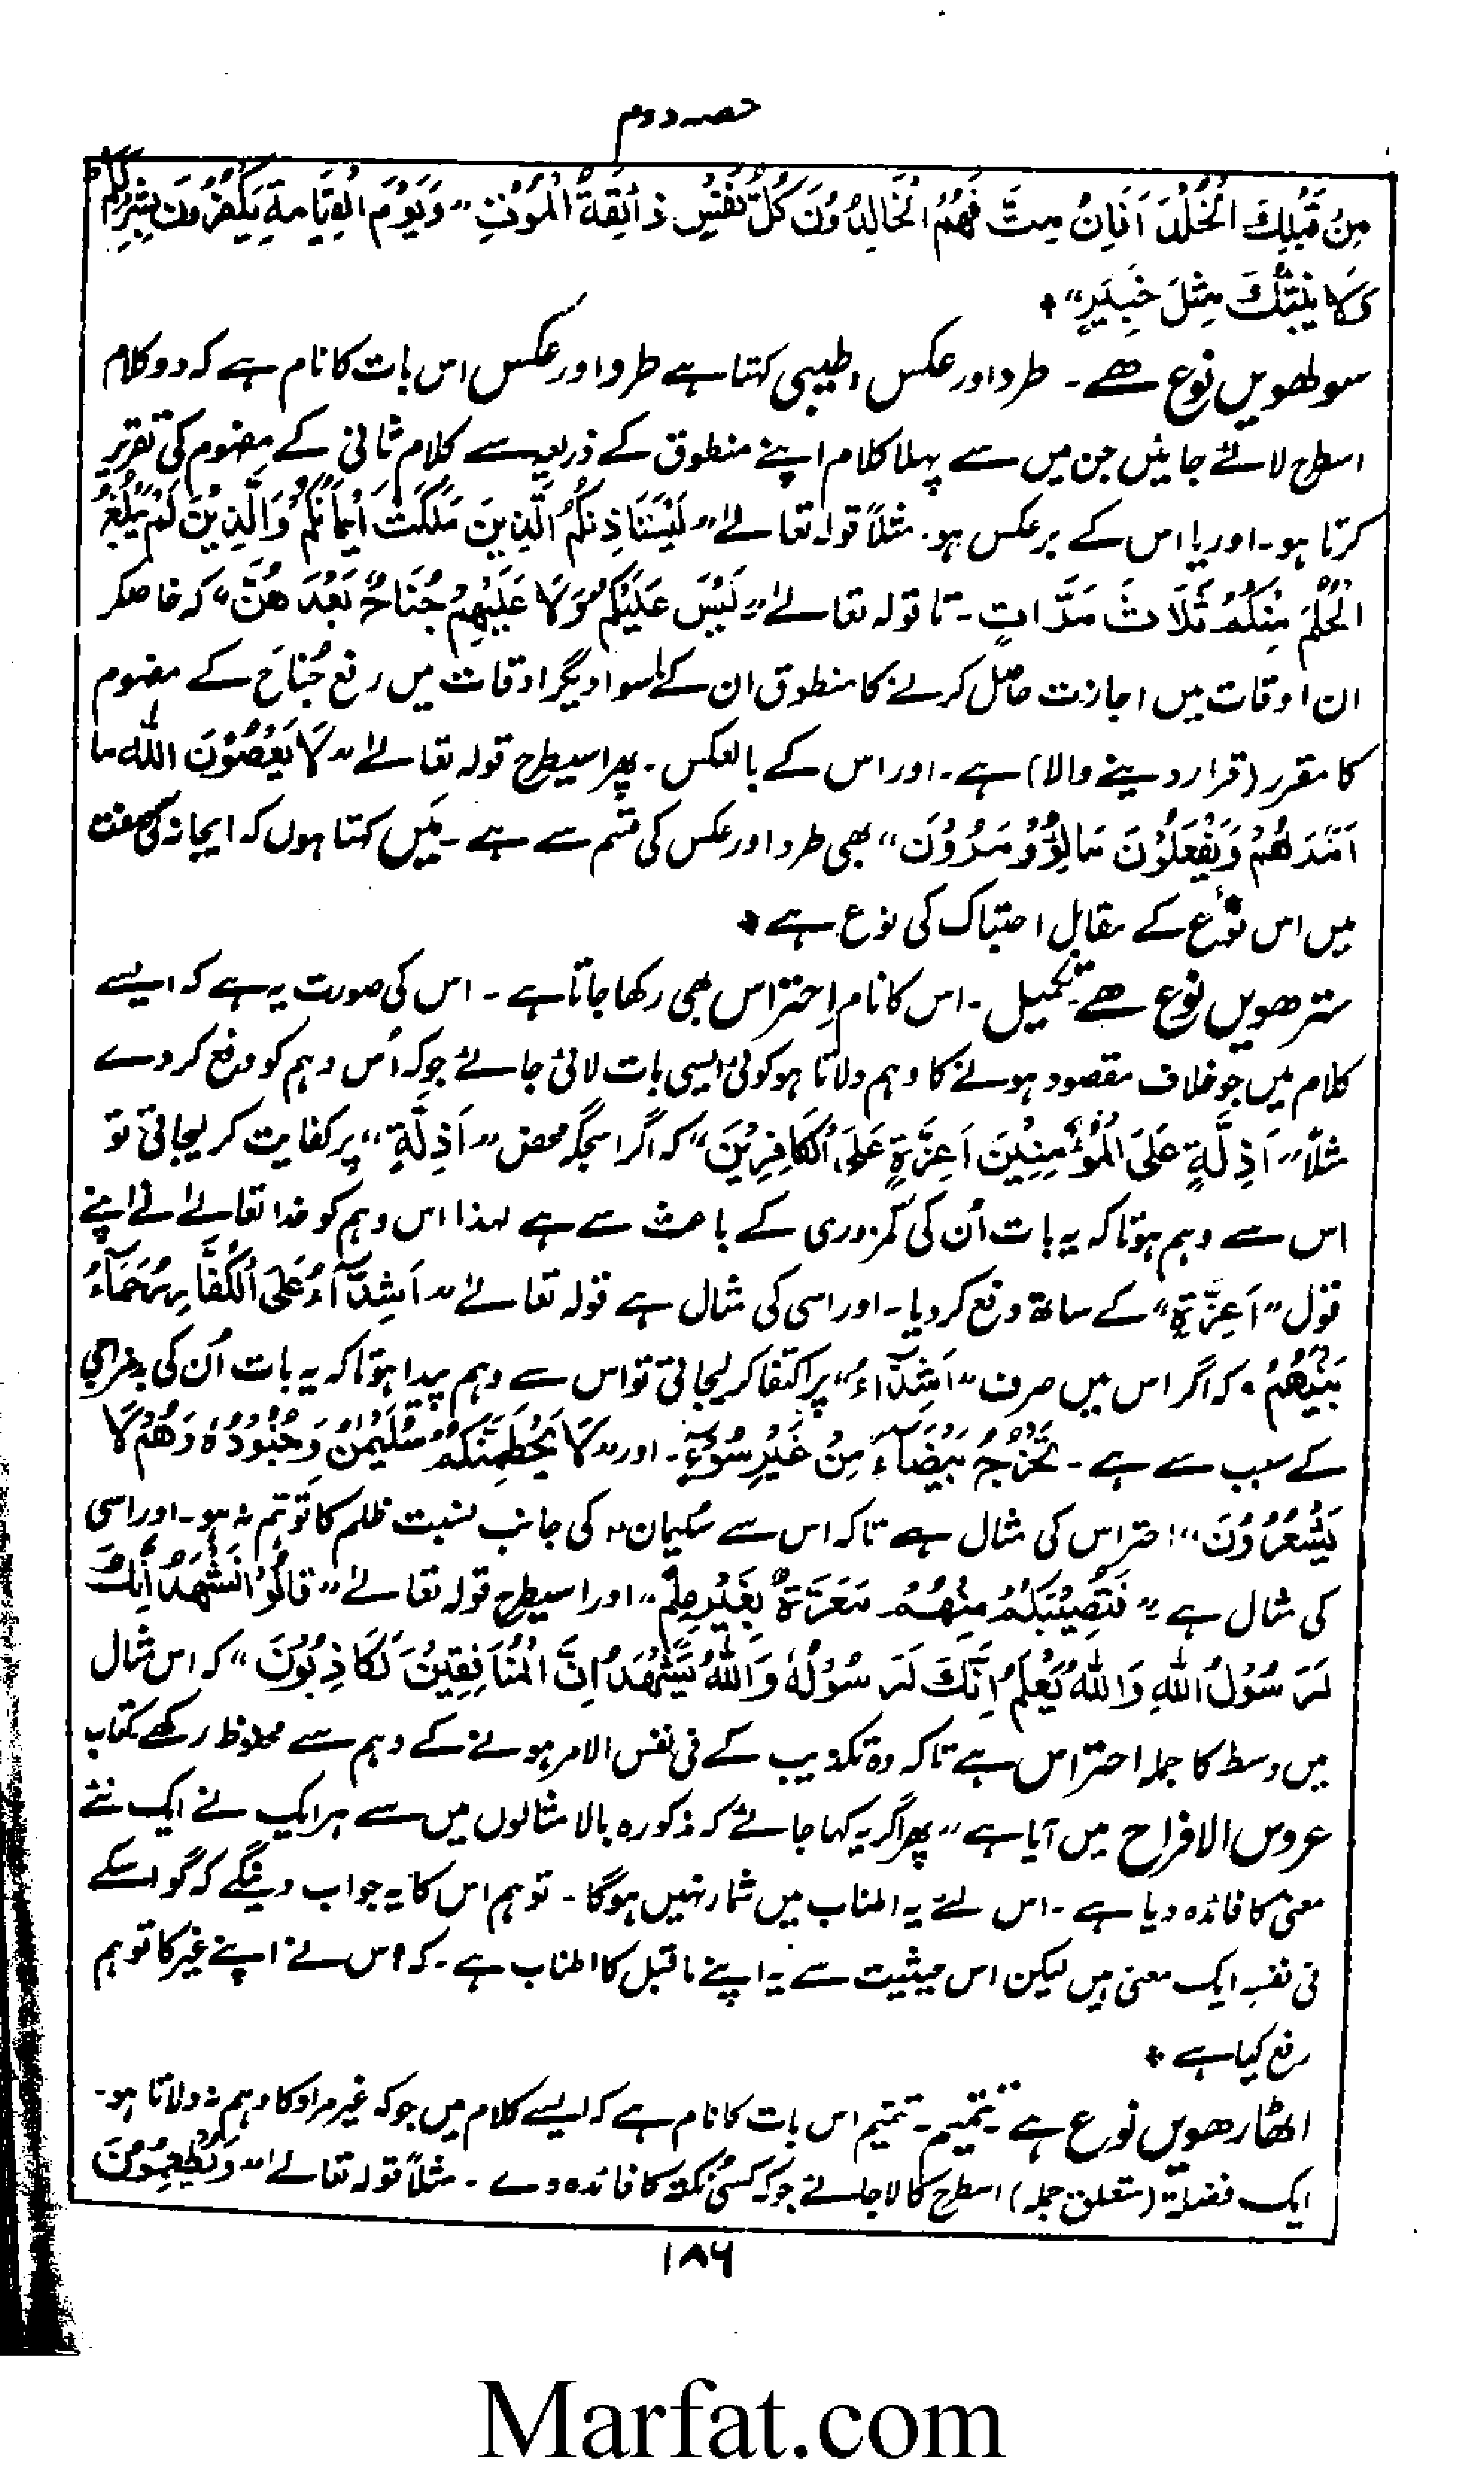 حصہ دوم
مِنْ قَبْلِكَ الْخُلْدَ اَفَاِنْ مِتَّ فَهُمُ الْخَالِدُوْنَ كُلُّ نَفْسٍ ذَائِقَةُ الْمَوْتِ" وَيَوْمَ الْقِيَامَةِ يَكْفُرُوْنَ بِشِرْكِكُمْ
وَلَا يُنَبِّئُكَ مِثْلُ خَبِيْرٍ" ٭
سولھویں نوع ہے۔ طرد اور عکس، طیبی کہتا ہے طرد اور عکس اس بات کا نام ہے کہ دو کلام
اسطرح لائے جائیں جن میں سے پہلا کلام اپنے منطوق کے ذریعہ سے کلام ثانی کے مفہوم کی تقریر
کرتا ہو۔ اور یا اس کے برعکس ہو۔ مثلاً قولہ تعالےٰ "لِيَسْتَاْذِنْكُمُ الَّذِيْنَ مَلَكَتْ اَيْمَانُكُمْ وَالَّذِيْنَ لَمْ يَبْلُغُوا
الْحُلُمَ مِنْكُمْ ثَلَاثَ مَرَّاتٍ۔ تا قولہ تعالےٰ "لَيْسَ عَلَيْكُمْ وَلَا عَلَيْهِمْ جُنَاحٌ بَعْدَهُنَّ" کہ خاصکر
ان اوقات میں اجازت حاصل کرنے کا منطوق ان کے ماسوا دیگر اوقات میں رفع جُنَاحَ کے مفہوم
کا مقرر (قرار دینے والا) ہے۔ اور اس کے بالعکس۔ پھر اسیطرح قولہ تعالےٰ "لَا يَعْصُوْنَ اللّٰهَ مَا
اَمَرَهُمْ وَيَفْعَلُوْنَ مَا يُؤْمَرُوْنَ" بھی طرد اور عکس کی قسم سے ہے۔ مَیں کہتا ہوں کہ ایجاز کی صفت
میں اس نوع کے مقابل احتباک کی نوع ہے ٭
سترھویں نوع ہے تکمیل۔ اس کا نام اِحتراس بھی رکھا جاتا ہے۔ اس کی صورت یہ ہے کہ ایسے
کلام میں جو خلاف مقصود ہونے کا وہم دلاتا ہو کوئی ایسی بات لائی جائے جو کہ اُس وہم کو دفع کر دے
مثلاً "اَذِلَّةٍ عَلَى الْمُؤْمِنِيْنَ اَعِزَّةٍ عَلَى الْكَافِرِيْنَ" کہ اگر اسجگہ محض "اَذِلَّةٍ" پر کفایت کر لیجاتی تو
اس سے وہم ہوتا کہ یہ بات اُن کی کمزوری کے باعث سے ہے لہذا اس وہم کو خدا تعالےٰ نے اپنے
قول "اَعِزَّةٍ" کے ساتھ دفع کر دیا۔ اور اسی کی مثال ہے قولہ تعالےٰ "اَشِدَّآءُ عَلَى الْكُفَّارِ رُحَمَآءُ
بَيْنَهُمْ۔ کہ اگر اس میں صرف "اَشِدَّآءُ" پر اکتفا کر لیجاتی تو اس سے وہم پیدا ہوتا کہ یہ بات اُن کی بدمزاجی
کے سبب سے ہے۔ تَخْرُجُ بَيْضَآءَ مِنْ غَيْرِ سُوْٓءٍ۔ اور "لَا يَحْطِمَنَّكُمْ سُلَيْمٰنُ وَجُنُوْدُهٗ وَهُمْ لَا
يَشْعُرُوْنَ" احتراس کی مثال ہے تاکہ اس سے سُلیمانؑ کی جانب نسبت ظلم کا توہّم نہ ہو۔ اور اسی
کی مثال ہے "فَتُصِيْبَكُمْ مِنْهُمْ مَعَرَّةٌ بِغَيْرِ عِلْمٍ" اور اسیطرح قولہ تعالےٰ "قَالُوْا نَشْهَدُ اِنَّكَ
لَرَسُوْلُ اللّٰهِ وَاللّٰهُ يَعْلَمُ اِنَّكَ لَرَسُوْلُهٗ وَاللّٰهُ يَشْهَدُ اِنَّ الْمُنَافِقِيْنَ لَكَاذِبُوْنَ" کہ اس مثال
میں وسط کا جملہ احتراس ہے تاکہ وہ تکذیب کے فی نفس الامر ہونے کے وہم سے محفوظ رکھے کتاب
عروس الافراح میں آیا ہے "پھر اگر یہ کہا جائے کہ مذکورہ بالا مثالوں میں سے ہر ایک نے ایک نئے
معنی کا فائدہ دیا ہے۔ اس لئے یہ اطناب میں شمار نہیں ہو گا۔ تو ہم اس کا یہ جواب دینگے کہ گو اسکے
فی نفسہٖ ایک معنی ہیں لیکن اس حیثیت سے یہ اپنے ماقبل کا اطناب ہے۔ کہ اس نے اپنے غیر کا توہم
رفع کیا ہے ٭
اٹھارھویں نوع ہے تتمیم۔ تتمیم اس بات کا نام ہے کہ ایسے کلام میں جو کہ غیر مراد کا وہم نہ دلاتا ہو۔
ایک فضلۃ (متعلق جملہ) اسطرح کا لایا جائے جو کہ کسی نکتہ کا فائدہ دے۔ مثلاً قولہ تعالےٰ "وَيُطْعِمُوْنَ
۱۸۶
Marfat.com